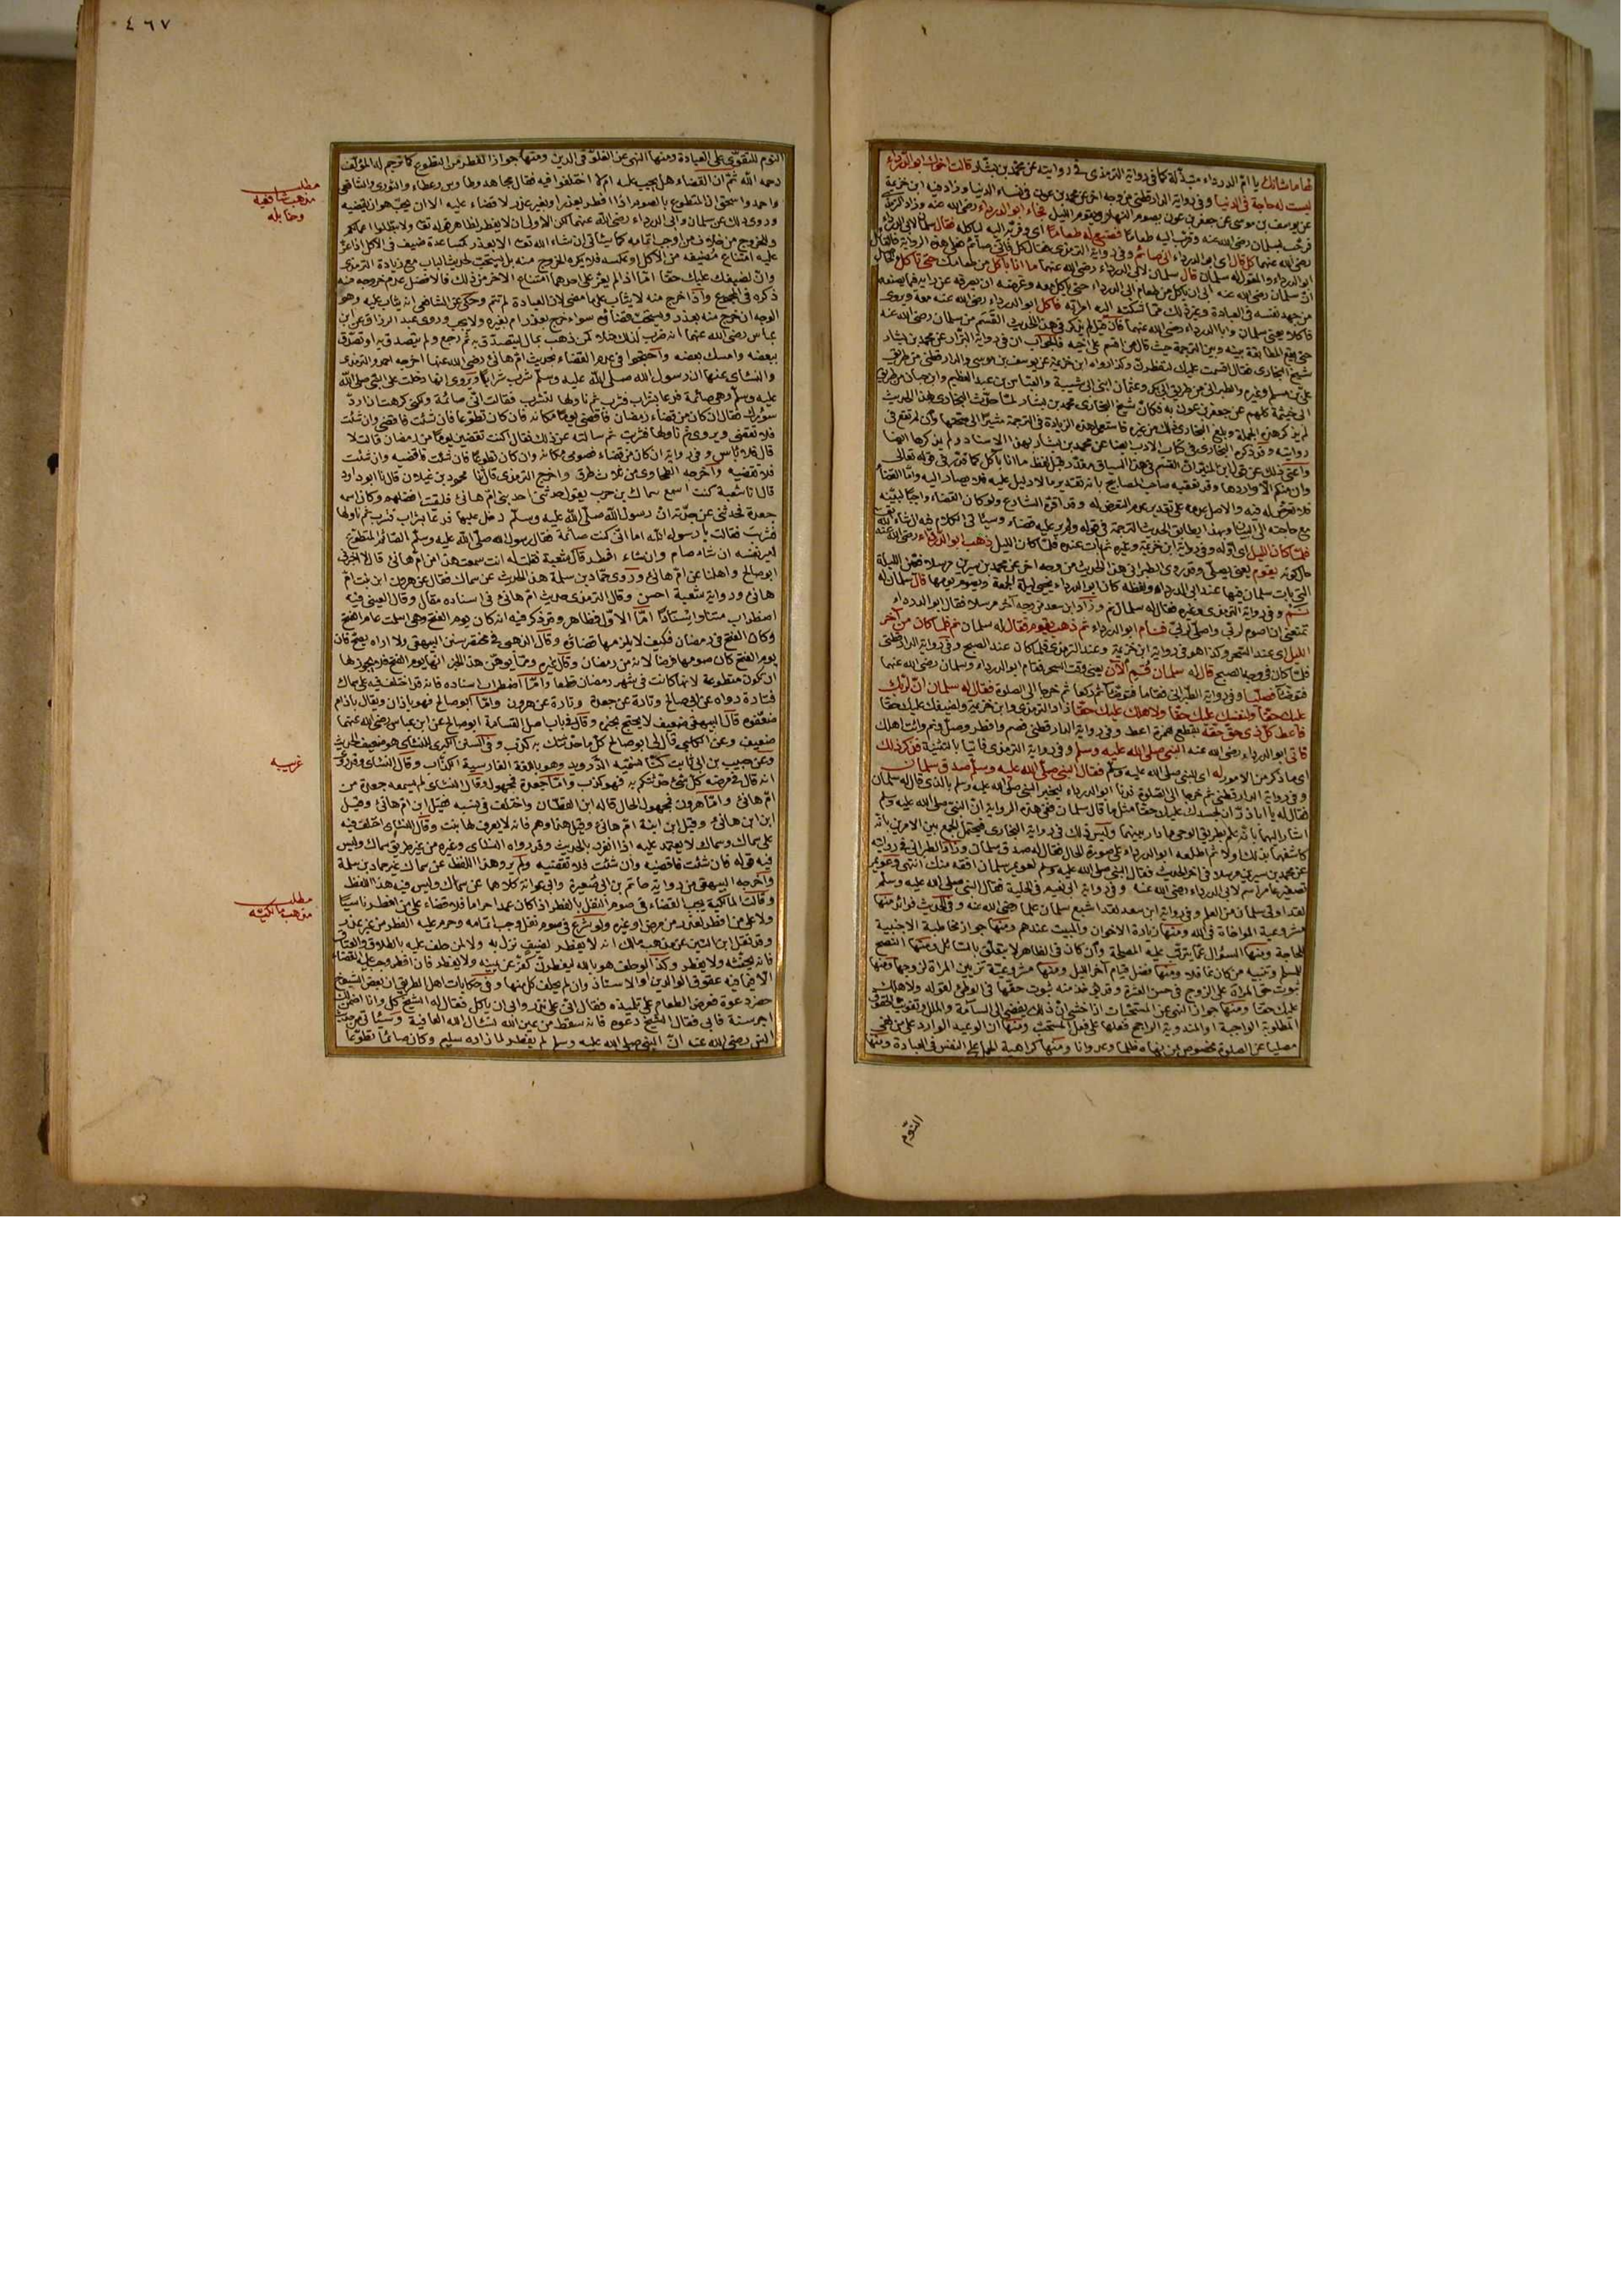 لها ما شانك يا امّ الدرداء متبذّلة كما فى رواية الترمذى فى روايته عن محمد بن بشار قالت اخوك ابو الدرداء
ليست له حاجة فى الدنيا وفى رواية الدارقطنى من وجه اخر عن جعفر بن عون فى نساء الدنيا وزاد فيه ابن خزيمة
عن يوسف بن موسى عن جعفر بن عون يصوم النهار ويقوم الليل فجاء ابو الدرداء رضى الله عنه وزاد الترمذى
فرحّب بسلمان رضى الله عنه وقرّب اليه طعاما فصنع له طعاما اى وقرّبه اليه لياكله فقال سلمان لابى الدرداء
رضى الله عنهما كل قال اى ابو الدرداء انى صائم وفى رواية الترمذى فقال كل فانّى صائم فعلى هذه الرواية فالقائل
ابو الدرداء والمقول له سلمان قال سلمان لابى الدرداء رضى الله عنهما ما انا بآكل من طعامك حتى تاكل
انّ سلمان رضى الله عنه ابى ان ياكل من طعام ابى الدرداء حتى ياكل معه وغرضه ان يصرفه عن رايه فيما يصنعه
من جهد نفسه فى العبادة وغير ذلك ممّا شكته اليه امرأته فاكل ابو الدرداء رضى الله عنه معه ويروى
فاكلا يعنى سلمان وابا الدرداء رضى الله عنهما فان قيل لم يذكر فى هذا الحديث القسم من سلمان رضى الله عنه
حتى يقع المطابقة بينه وبين الترجمة حيث قال من اقسم على اخيه فالجواب ان فى رواية البزّار عن محمد بن بشار
شيخ البخارى فقال اقسمت عليك لتفطرنّ وكذا رواه ابن خزيمة عن يوسف بن موسى والدارقطنى من طريق
علىّ بن مسلم وغيره والطبرانى من طريق ابى بكر وعثمان ابنى ابى شيبة والعباس بن عبد العظيم وابن حبان من طريق
ابى خيثمة كلهم عن جعفر بن عون به فكانّ شيخ البخارى محمد بن بشار لمّا حدّث البخارى بهذا الحديث
لم يذكر هذه الجملة وبلغ البخارى ذلك من غيره فاستعمل هذه الزيادة فى الترجمة مشيرا الى صحّتها وان لم تقع فى
روايته وقد ذكره البخارى فى كتاب الادب ايضا عن محمد بن بشار بهذا الاسناد ولم يذكرها ايضا
واغنى ذلك عن قول ابن المنير انّ القسم فى هذا السياق مقدّر قبل لفظ ما انا بآكل كما قدّر فى قوله تعالى
وان منكم الّا واردها وقد تعقبه صاحب المصابيح بانه تقدير ما لا دليل عليه فلا يصار اليه وامّا القضاء
فلا تعرّض له فيه والاصل عدمه على تقدير عدم التعرّض له وقد اقرّه الشارع ولو كان القضاء واجبا لبيّنه
مع حاجته الى البيان وبهذا يطابق الحديث الترجمة فى قوله ولم ير عليه قضاء وسيأتى الكلام فيه ان شاء الله تعالى
فلمّا كان الليل اى اوّله وفى رواية ابن خزيمة وغيره ثم بات عنده فلمّا كان الليل ذهب ابو الدرداء رضى الله عنه
حال كونه يقوم يعنى يصلّى وقد روى الطبرانى هذا الحديث من وجه اخر عن محمد بن سيرين مرسلا فعيّن الليلة
التى بات سلمان فيها عند ابى الدرداء ولفظه كان ابو الدرداء يحيى ليلة الجمعة ويصوم يومها قال سلمان له
نم وفى رواية الترمذى وغيره فقال له سلمان نم وزاد ابن سعد من وجه آخر مرسلا فقال ابو الدرداء
تمنعنى ان اصوم لربّى واصلّى لربّى فنام ابو الدرداء ثم ذهب يقوم فقال له سلمان نم فلما كان من آخر
الليل اى عند السحر وكذا هو فى رواية ابن خزيمة وعند الترمذى فلما كان عند الصبح وفى رواية الدارقطنى
فلمّا كان فى وجه الصبح قال له سلمان قم الآن يعنى وقت السحر فقام ابو الدرداء وسلمان رضى الله عنهما
فتوضّأ فصلّيا وفى رواية الطبرانى فقاما فتوضّئا ثم ركعا ثم خرجا الى الصلوة فقال له سلمان انّ لربّك
عليك حقّا ولنفسك عليك حقّا ولاهلك عليك حقّا زاد الترمذى وابن خزيمة ولضيفك عليك حقّا
فأعط كلّ ذى حق حقّه بقطع همزة اعط وفى رواية الدارقطنى فصم وافطر وصلّ ونم وائت اهلك
فاتى ابو الدرداء رضى الله عنه النبى صلى الله عليه وسلم وفى رواية الترمذى فاتيا بالتثنية فذكر ذلك
اى ما ذكر من الامور له اى للنبى صلى الله عليه وسلّم فقال النبى صلّى الله عليه وسلّم صدق سلمان
وفى رواية الدارقطنى ثم خرجا الى الصلوة فدنا ابو الدرداء ليخبر النبى صلّى الله عليه وسلم بالذى قال له سلمان
فقال له يا ابا الدرداء انّ لجسدك عليك حقّا مثل ما قال سلمان ففى هذه الرواية انّ النبى صلى الله عليه وسلم
اشار اليهما بانّه علم بطريق الوحى ما دار بينهما وليس ذلك فى رواية البخارى فيحتمل الجمع بين الامرين بانّه
كاشفهما بذلك اولا ثم اطلعه ابو الدرداء على صورة الحال فقال له صدق سلمان وزاد الطبرانى فى روايته
عن محمد بن سيرين مرسلا فى اخر الحديث فقال النبى صلى الله عليه وسلم لعويمر سلمان افقه منك انتهى وعويمر
تصغير عامر اسم لابى الدرداء رضى الله عنه وفى رواية ابى نعيم فى الحلية فقال النبى صلى الله عليه وسلّم
لقد اوتى سلمان من العلم وفى رواية ابن سعد لقد اشبع سلمان علما رضى الله عنه وفى الحديث فوائد منها
مشروعية المواخاة فى الله ومنها زيارة الاخوان والمبيت عندهم ومنها جواز مخاطبة الاجنبية
للحاجة ومنها السؤال عمّا يترتّب عليه المصلحة وان كان فى الظاهر لا يتعلّق بالسّائل ومنها النصح
للمسلم وتنبيه من كان غافلا ومنها فضل قيام آخر الليل ومنها مشروعيّة تزيين المراة لزوجها ومنها
ثبوت حقّ المراة على الزوج فى حسن العشرة وقد يؤخذ منه ثبوت حقّها فى الوطئ لقوله ولاهلك
عليك حقّا ومنها جواز النهى عن المستحبّات اذا خشى انّ ذلك يفضى الى السآمة والملل وتفويت الحقوق
المطلوبة الواجبة او المندوبة الراجح فعلها على فعل المستحبّ ومنها ان الوعيد الوارد على من نهى
مصليا عن الصلوة مخصوص بمن نهاه ظلما وعدوانا ومنها كراهية الحمل على النفس فى العبادة ومنها
النّوم
٤٦٧
النوم للتقوّى على العبادة ومنها النهى عن الغلوّ فى الدين ومنها جواز الفطر من التطوّع كما ترجم له المؤلّف
رحمه الله ثمّ ان القضاء هل يجب عليه ام لا اختلفوا فيه فقال مجاهد وطاوس وعطاء والثورى والشافعى
واحمد واسحق انّ المتطوّع بالصوم اذا افطر بعذر او بغير عذر لا قضاء عليه الا ان يحبّ هو ان يقضيه
وروى ذلك عن سلمان وابى الدرداء رضى الله عنهما لكن الاولى ان لا يفطر لظاهر قوله تعالى ولا تبطلوا اعمالكم
وللخروج من خلاف من اوجب اتمامه كما سيأتى ان شاء الله تعالى الا بعذر كمساعدة ضيف فى الاكل اذا عزّ
عليه امتناع مضيفه من الاكل او عكسه فلا يكره الخروج منه بل يستحبّ لحديث الباب مع زيادة الترمذى
وانّ لضيفك عليك حقّا امّا اذا لم يعزّ على احدهما امتناع الاخر من ذلك فالافضل عدم خروجه منه
ذكره فى المجموع واذا خرج منه لا يثاب على ما مضى لان العبادة لم تتم وحكى عن الشافعى انه يثاب عليه وهو
الوجه ان خرج منه بعذر ويستحبّ قضاؤه سواء خرج بعذر ام بغيره ولا يجب وروى عبد الرزاق عن ابن
عباس رضى الله عنهما انه ضرب لذلك مثلا كمن ذهب بمال ليتصدّق به ثم رجع ولم يتصدق به او تصدّق
ببعضه وامسك بعضه واحتجّوا فى عدم القضاء بحديث امّ هانئ رضى الله عنها اخرجه احمد والترمذى
والنسائى عنها ان رسول الله صلى الله عليه وسلّم شرب شرابا ويروى انها دخلت على النبى صلى الله
عليه وسلّم وهى صائمة فدعا بشراب فشرب ثم ناولها لتشرب فقالت انّى صائمة ولكنى كرهت ان اردّ
سؤرك فقال ان كان من قضاء رمضان فاقضى يوما مكانه فان كان تطوّعا فان شئت فاقضى وان شئت
فلا تقضى ويروى ثم ناولها فشربت ثم سألته عن ذلك فقال اكنت تقضين يوما من رمضان قالت لا
قال فلا بأس وفى رواية ان كان من قضاء فصومى مكانه وان كان تطوعا فان شئت فاقضيه وان شئت
فلا تقضيه واخرجه الطحاوى من ثلاث طرق واخرج الترمذى قال ثنا محمود بن غيلان قال ثنا ابو داود
قال ثنا شعبة كنت اسمع سماك بن حرب يقول حدثنى احد بنى امّ هانئ فلقيت افضلهم وكان اسمه
جعدة فحدثنى عن جدّته ان رسول الله صلّى الله عليه وسلّم دخل عليها فدعا بشراب فشرب ثم ناولها
فشربت فقالت يا رسول الله اما انّى كنت صائمة فقال رسول الله صلّى الله عليه وسلّم الصائم المتطوّع
امير نفسه ان شاء صام وان شاء افطر قال شعبة فقلت له انت سمعت هذا من امّ هانئ قال لا اخبرنى
ابو صالح واهلنا عن امّ هانئ وروى حمّاد بن سلمة هذا الحديث عن سماك فقال عن هرون ابن بنت امّ
هانئ ورواية شعبة احسن وقال الترمذى حديث امّ هانئ فى اسناده مقال وقال العينى فيه
اضطراب متنا واسنادا امّا الاوّل فظاهر وقد ذكر فيه انه كان يوم الفتح وهى اسلمت عام الفتح
وكان الفتح فى رمضان فكيف لا يلزمها قضاؤه وقال الذهبى فى مختصر سنن البيهقى ولا اراه يصحّ فان
يوم الفتح كان صومها فرضا لانه من رمضان وقال غيره وممّا يوهن هذا الخبر انها يوم الفتح فلا يجوز لها
ان تكون متطوعة لانها كانت فى شهر رمضان قطعا وامّا اضطراب اسناده فانه قد اختلف فيه على سماك
فتارة رواه عن ابى صالح وتارة عن جعدة وتارة عن هرون وامّا ابو صالح فهو باذان ويقال باذام
ضعّفوه قال البيهقى ضعيف لا يحتج بخبره وقال فى باب اصل القسامة ابو صالح عن ابن عباس رضى الله عنهما
ضعيف وعن الكلبى قال لى ابو صالح كلّ ما حدّثتك به كذب وفى السنن الكبرى للنسائى هو ضعيف الحديث
وعن حبيب بن ابى ثابت كنّا نسمّيه الدّروزن وهو باللغة الفارسية الكذّاب وقال النسائى وقد روى
انه قال فى مرضه كل شئ حدّثتكم به فهو كذب وامّا جعدة فمجهول وقال النسائى لم يسمعه جعدة من
امّ هانئ وامّا هرون فمجهول الحال قاله ابن القطّان واختلف فى نسبه فقيل ابن امّ هانئ وقيل
ابن ابن هانئ وقيل ابن ابنة امّ هانئ وقيل هذا وهم فانه لا يعرف لها بنت وقال النسائى اختلف فيه
على سماك وسماك لا يعتمد عليه اذا انفرد بالحديث وقد رواه النسائى وغيره من غير طريق سماك وليس
فيه قوله فان شئت فاقضيه وان شئت فلا تقضيه ولم يرو هذا اللفظ عن سماك غير حماد بن سلمة
واخرجه البيهقى من رواية حاتم بن ابى صغيرة وابى عوانة كلاهما عن سماك وليس فيه هذا اللفظ
وقالت المالكية يجب القضاء فى صوم النفل بالفطر اذا كان عمدا حراما فلا قضاء على من افطر ناسيا
ولا على من افطر لعذر من مرض او غيره ولو شرع فى صوم نفل وجب اتمامه وحرم عليه الفطر من غير عذر
وقد نقل ابن التين عن مذهب مالك انه لا يفطر لضيف نزل به ولا لمن حلف عليه بالطلاق والعتاق
فانه يحنثه ولا يفطر وكذا لو حلف هو بالله ليفطرنّ كفّر عن يمينه ولا يفطر فان افطر وجب عليه القضاء
الّا فيما فيه عقوق الوالدين او الاستاذ وان لم يحلف كل منها وفى حكايات اهل الطريق ان بعض الشيوخ
حضر دعوة فعرض الطعام على تلميذه فقال انّى على نذر وابى ان ياكل فقال له الشيخ كل وانا اضمن لك
اجر سنة فابى فقال الشيخ دعوه فانه سقط من عين الله نسأل الله العافية وسيأتى من حديث
انس رضى الله عنه انّ النبى صلى الله عليه وسلم لم يفطر لما زار ام سليم وكان صائما تطوّعا
مطلب
مذهب شافعيه
وحنابله
غريبه
مطلب
مذهب مالكيّه